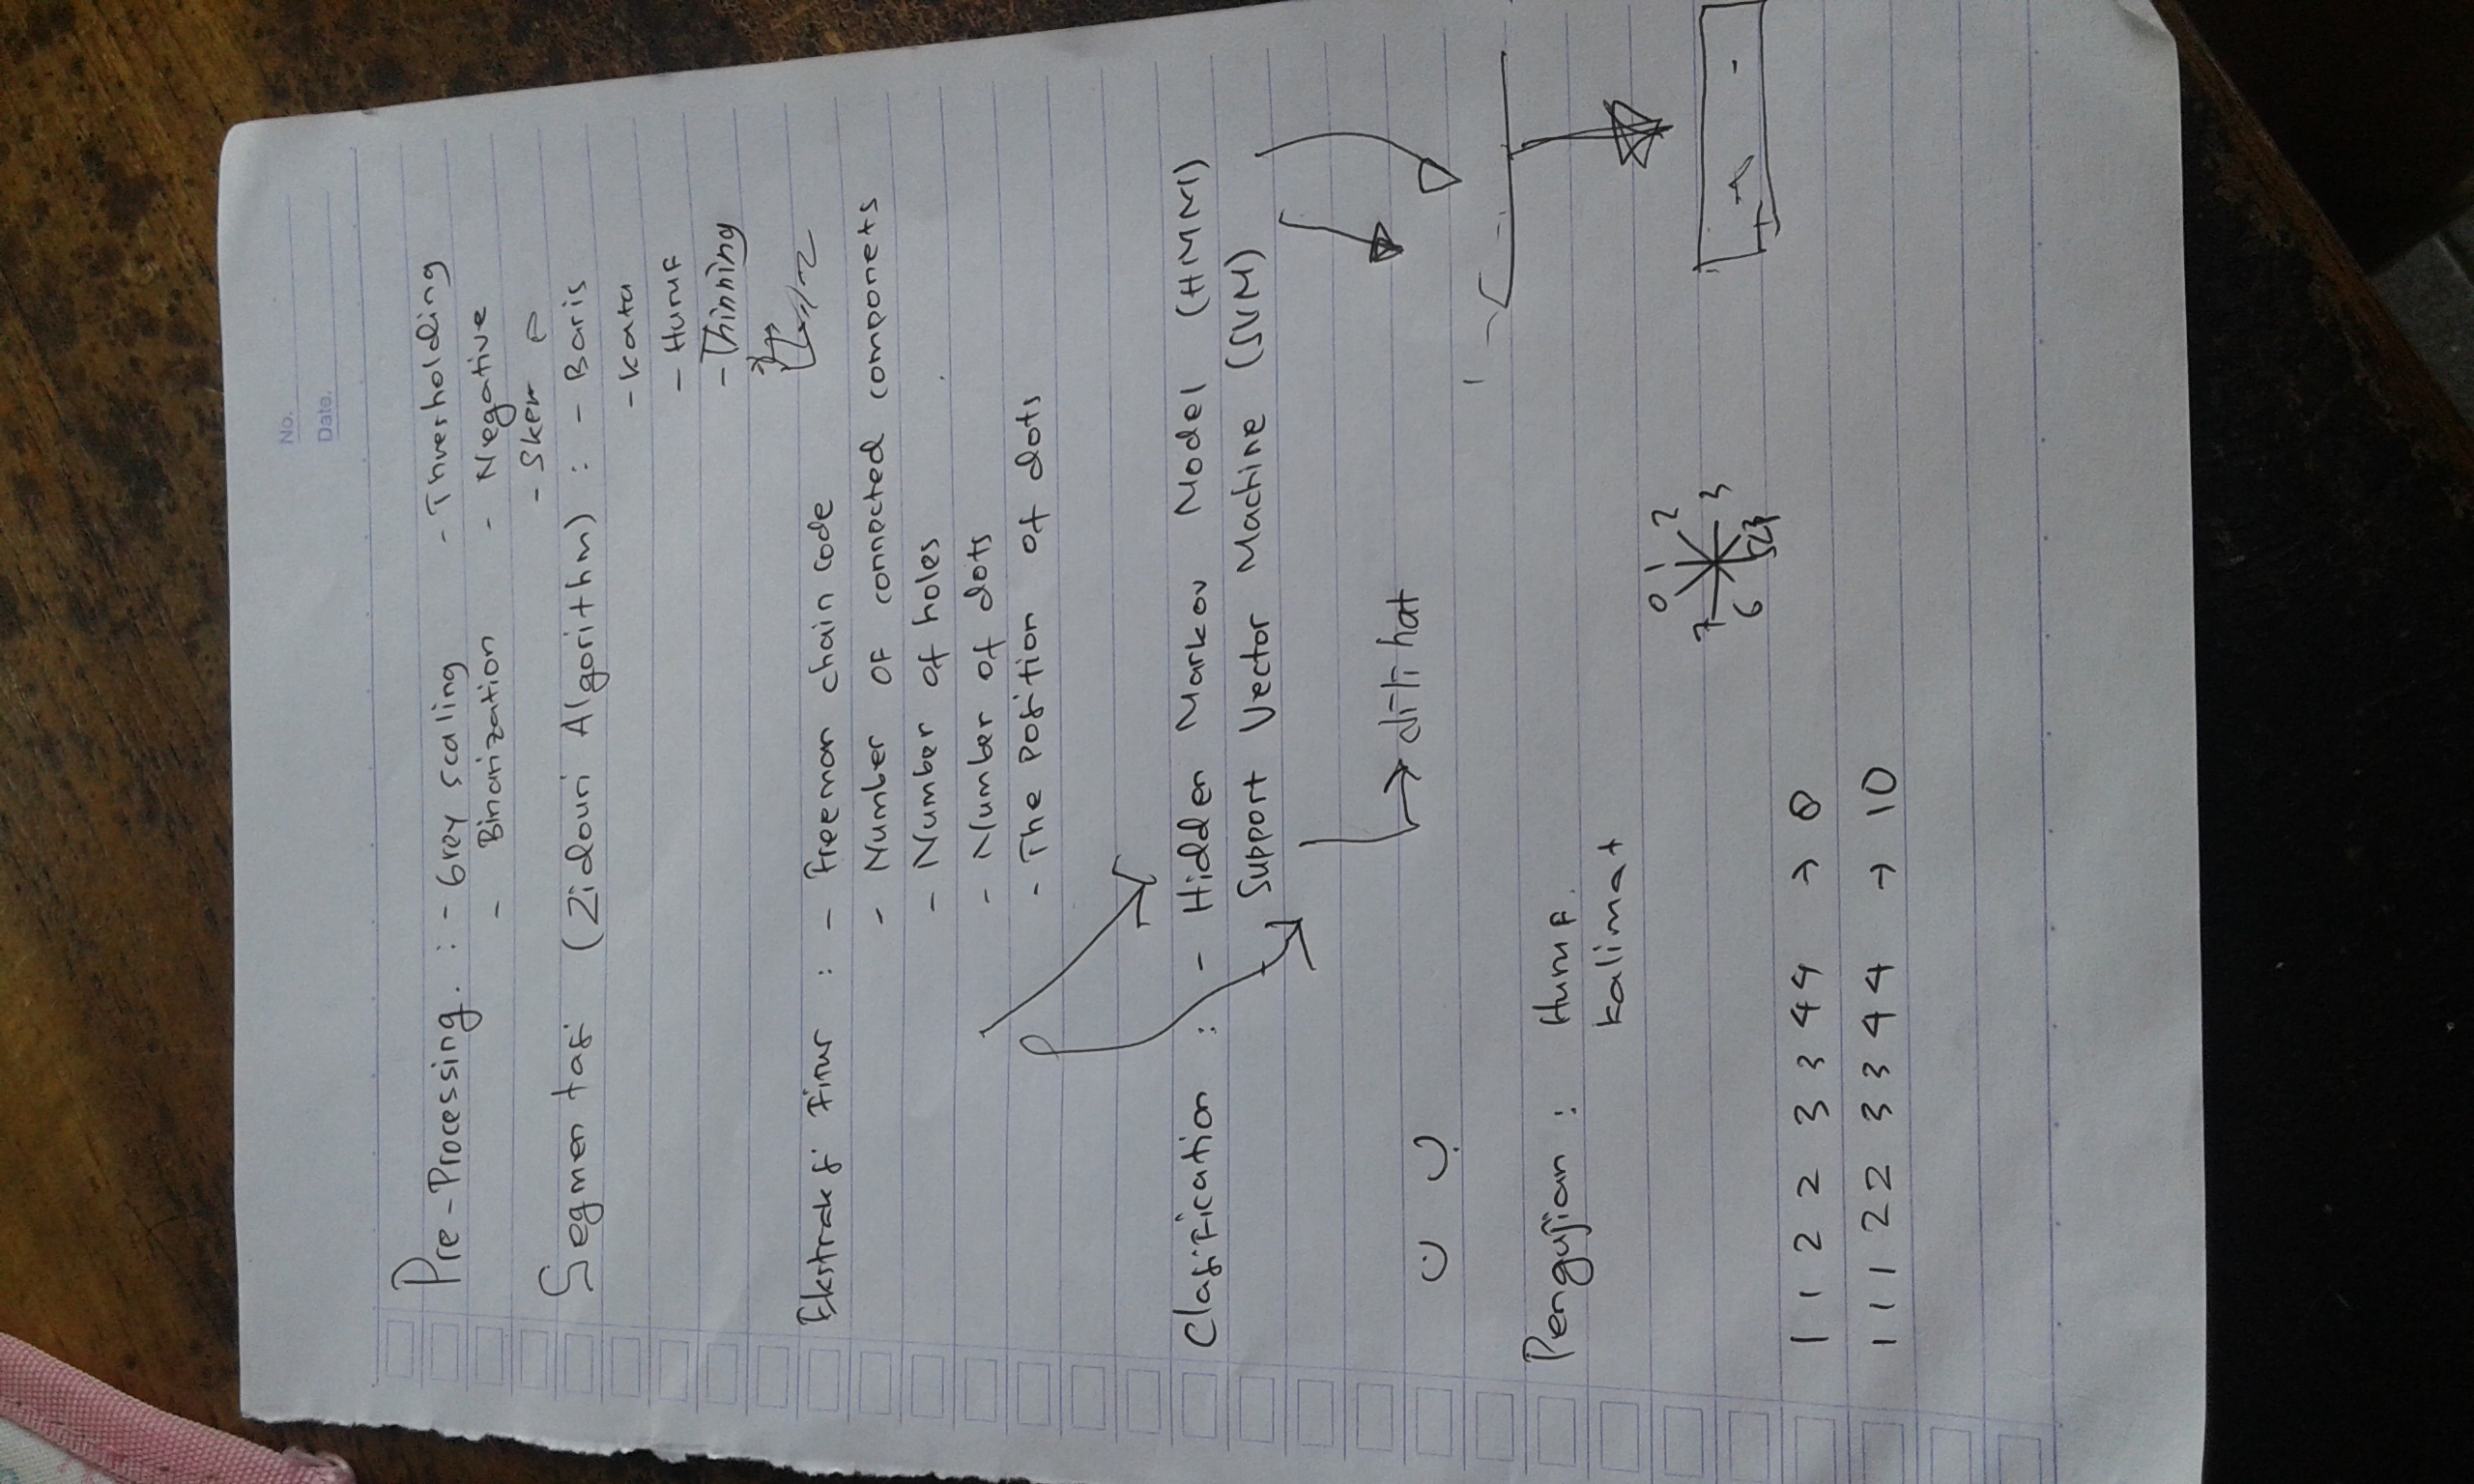 No.
Date.
Pre-Processing. : - Grey scaling - Thresholding
- Binarization - Negative
- Skew
Segmentasi (Zidouri Algorithm) : - Baris
- Kata
- Huruf
- Thinning
Ekstraksi Fitur : - Freeman chain code
- Number of connected componets
- Number of holes
- Number of dots
- The Position of dots
Clasification : - Hidden Markov Model (HMM)
- Support Vector Machine (SVM)
→ dilihat
ن ب
Pengujian : Huruf.
Kalimat
0 1 2
7 3
6 5 4
1 1 2 2 3 3 4 4 → 8
1 1 1 2 2 3 3 4 4 → 10